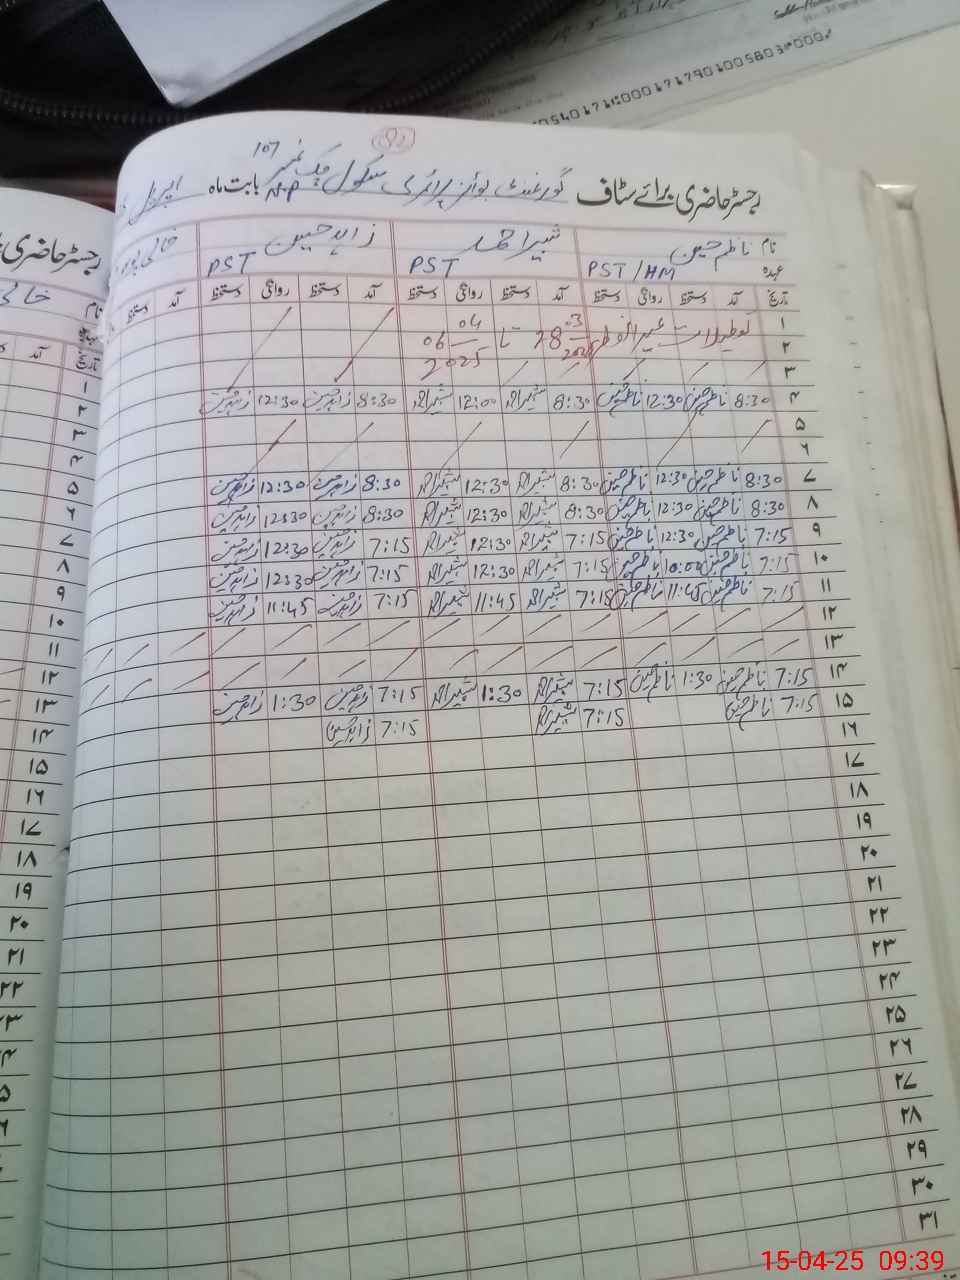 92
رجسٹر حاضری برائے سٹاف گورنمنٹ بوائز پرائمری سکول چک نمبر 107 N.P بابت ماہ اپریل
نام ناظم حسین شبیر احمد زاہد حسین خالی
عہدہ PST/HM PST PST
تاریخ آمد دستخط روانگی دستخط آمد دستخط روانگی دستخط آمد دستخط روانگی دستخط آمد دستخط
۱ تعطیلات عید الفطر 28-03-2025 تا 06-04-2025
۲
۳
۴ 8:30 ناظم حسین 12:30 ناظم حسین 8:30 شبیر احمد 12:00 شبیر احمد 8:30 زاہد حسین 12:30 زاہد حسین
۵
۶
۷ 8:30 ناظم حسین 12:30 ناظم حسین 8:30 شبیر احمد 12:30 شبیر احمد 8:30 زاہد حسین 12:30 زاہد حسین
۸ 8:30 ناظم حسین 12:30 ناظم حسین 8:30 شبیر احمد 12:30 شبیر احمد 8:30 زاہد حسین 12:30 زاہد حسین
۹ 7:15 ناظم حسین 12:30 ناظم حسین 7:15 شبیر احمد 12:30 شبیر احمد 7:15 زاہد حسین 12:30 زاہد حسین
۱۰ 7:15 ناظم حسین 10:00 ناظم حسین 7:15 شبیر احمد 12:30 شبیر احمد 7:15 زاہد حسین 12:30 زاہد حسین
۱۱ 7:15 ناظم حسین 11:45 ناظم حسین 7:15 شبیر احمد 11:45 شبیر احمد 7:15 زاہد حسین 11:45 زاہد حسین
۱۲
۱۳
۱۴ 7:15 ناظم حسین 1:30 ناظم حسین 7:15 شبیر احمد 1:30 شبیر احمد 7:15 زاہد حسین 1:30 زاہد حسین
۱۵ 7:15 ناظم حسین 7:15 شبیر احمد 7:15 زاہد حسین
۱۶
۱۷
۱۸
۱۹
۲۰
۲۱
۲۲
۲۳
۲۴
۲۵
۲۶
۲۷
۲۸
۲۹
۳۰
۳۱
رجسٹر حاضری
نام خالی
عہدہ
تاریخ آمد
۱
۲
۳
۴
۵
۶
۷
۸
۹
۱۰
۱۱
۱۲
۱۳
۱۴
۱۵
۱۶
۱۷
۱۸
۱۹
۲۰
۲۱
۲۲
۲۳
15-04-25 09:39